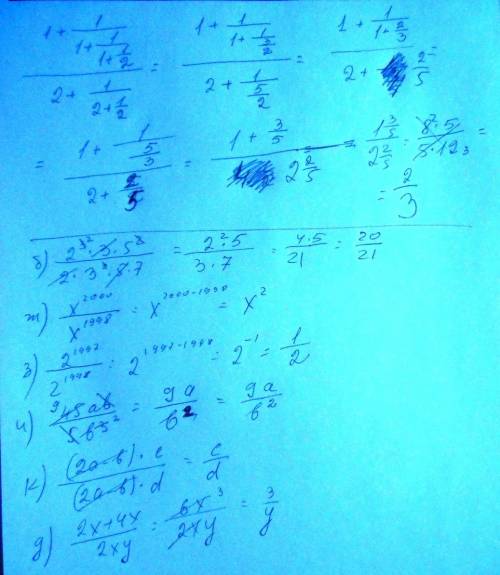 (1 + 1/(1 + 1/(1 + 1/2))) / (2 + 1/(2 + 1/2)) = (1 + 1/(1 + 1/(3/2))) / (2 + 1/(5/2)) = (1 + 1/(1 + 2/3)) / (2 + 2/5) =
= (1 + 1/(5/3)) / (2 + 2/5) = (1 + 3/5) / (2 2/5) = (1 3/5) / (2 2/5) = (8² · 5) / (5 · 12₃) =
= 2/3
б) (2³² · 3 · 5²) / (2 · 3² · 5 · 7) = (2² · 5) / (3 · 7) = (4 · 5) / 21 = 20/21
ж) x²⁰⁰⁰ / x¹⁹⁹⁸ = x²⁰⁰⁰⁻¹⁹⁹⁸ = x²
з) 2¹⁹⁹⁷ / 2¹⁹⁹⁸ = 2¹⁹⁹⁷⁻¹⁹⁹⁸ = 2⁻¹ = 1/2
и) = 9a / b² = 9a / b²
к) ((2a-b) · c) / ((2a-b) · d) = c/d
д) (2x+4x) / 2xy = 6x³ / 2xy = 3/y